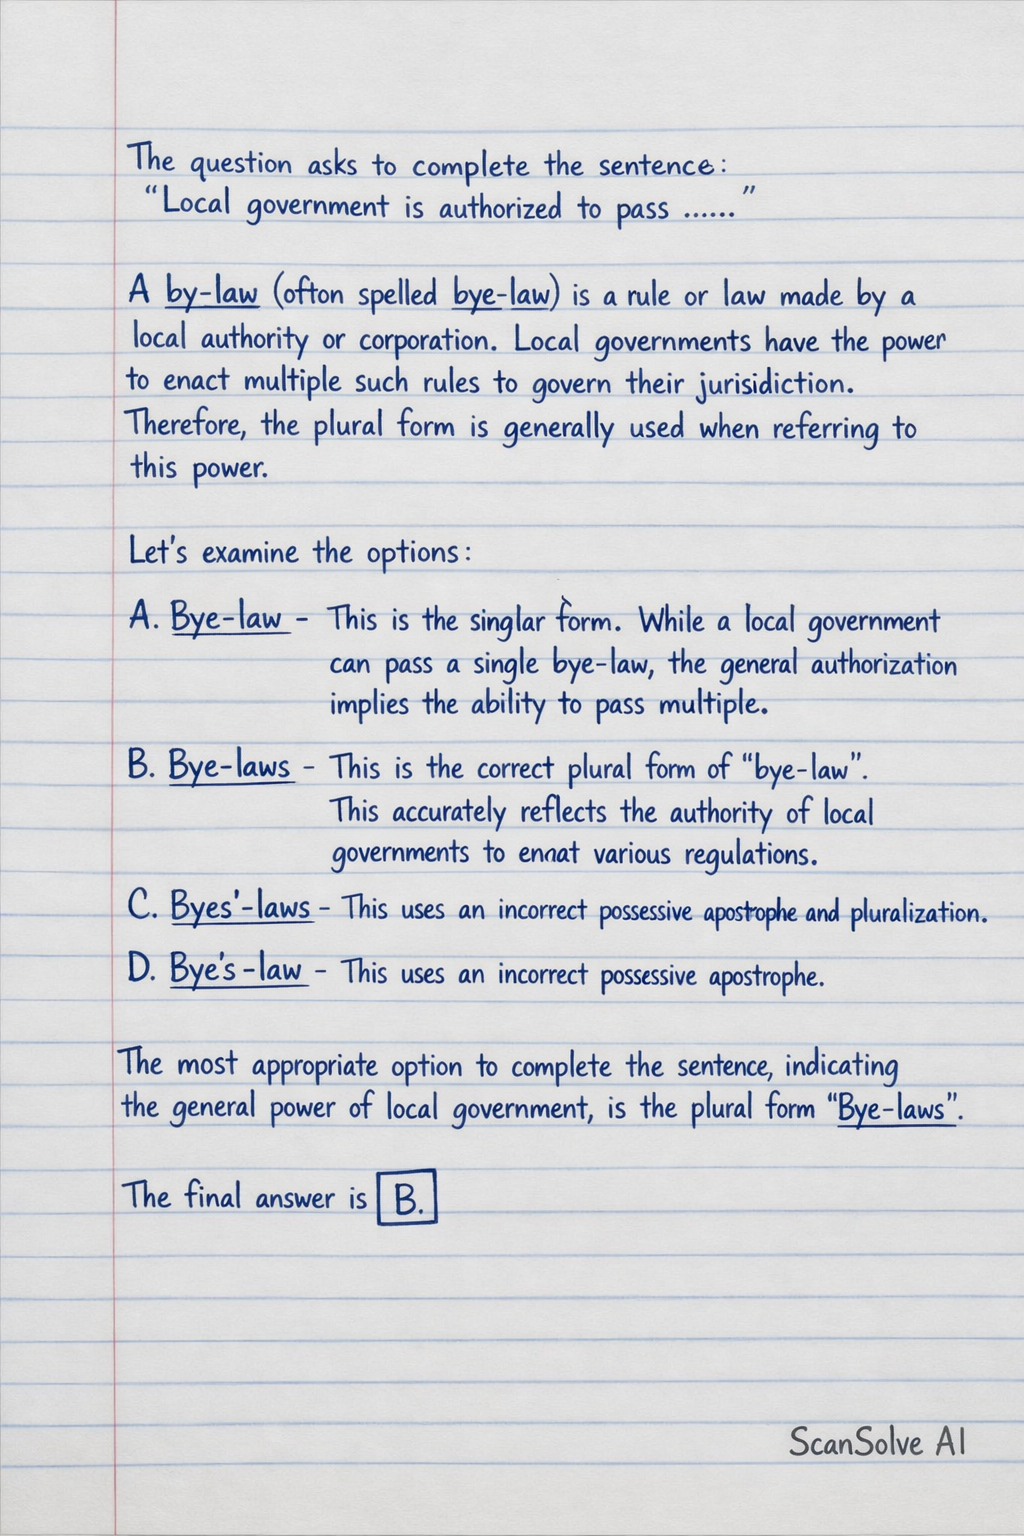 The question asks to complete the sentence:
“Local government is authorized to pass ......”
A by-law (ofton spelled bye-law) is a rule or law made by a
local authority or corporation. Local governments have the power
to enact multiple such rules to govern their jurisidiction.
Therefore, the plural form is generally used when referring to
this power.
Let's examine the options:
A. Bye-law - This is the singlar form. While a local government
can pass a single bye-law, the general authorization
implies the ability to pass multiple.
B. Bye-laws - This is the correct plural form of “bye-law”.
This accurately reflects the authority of local
governments to ennat various regulations.
C. Byes'-laws - This uses an incorrect possessive apostrophe and pluralization.
D. Bye's-law - This uses an incorrect possessive apostrophe.
The most appropriate option to complete the sentence, indicating
the general power of local government, is the plural form “Bye-laws”.
The final answer is B.
ScanSolve AI